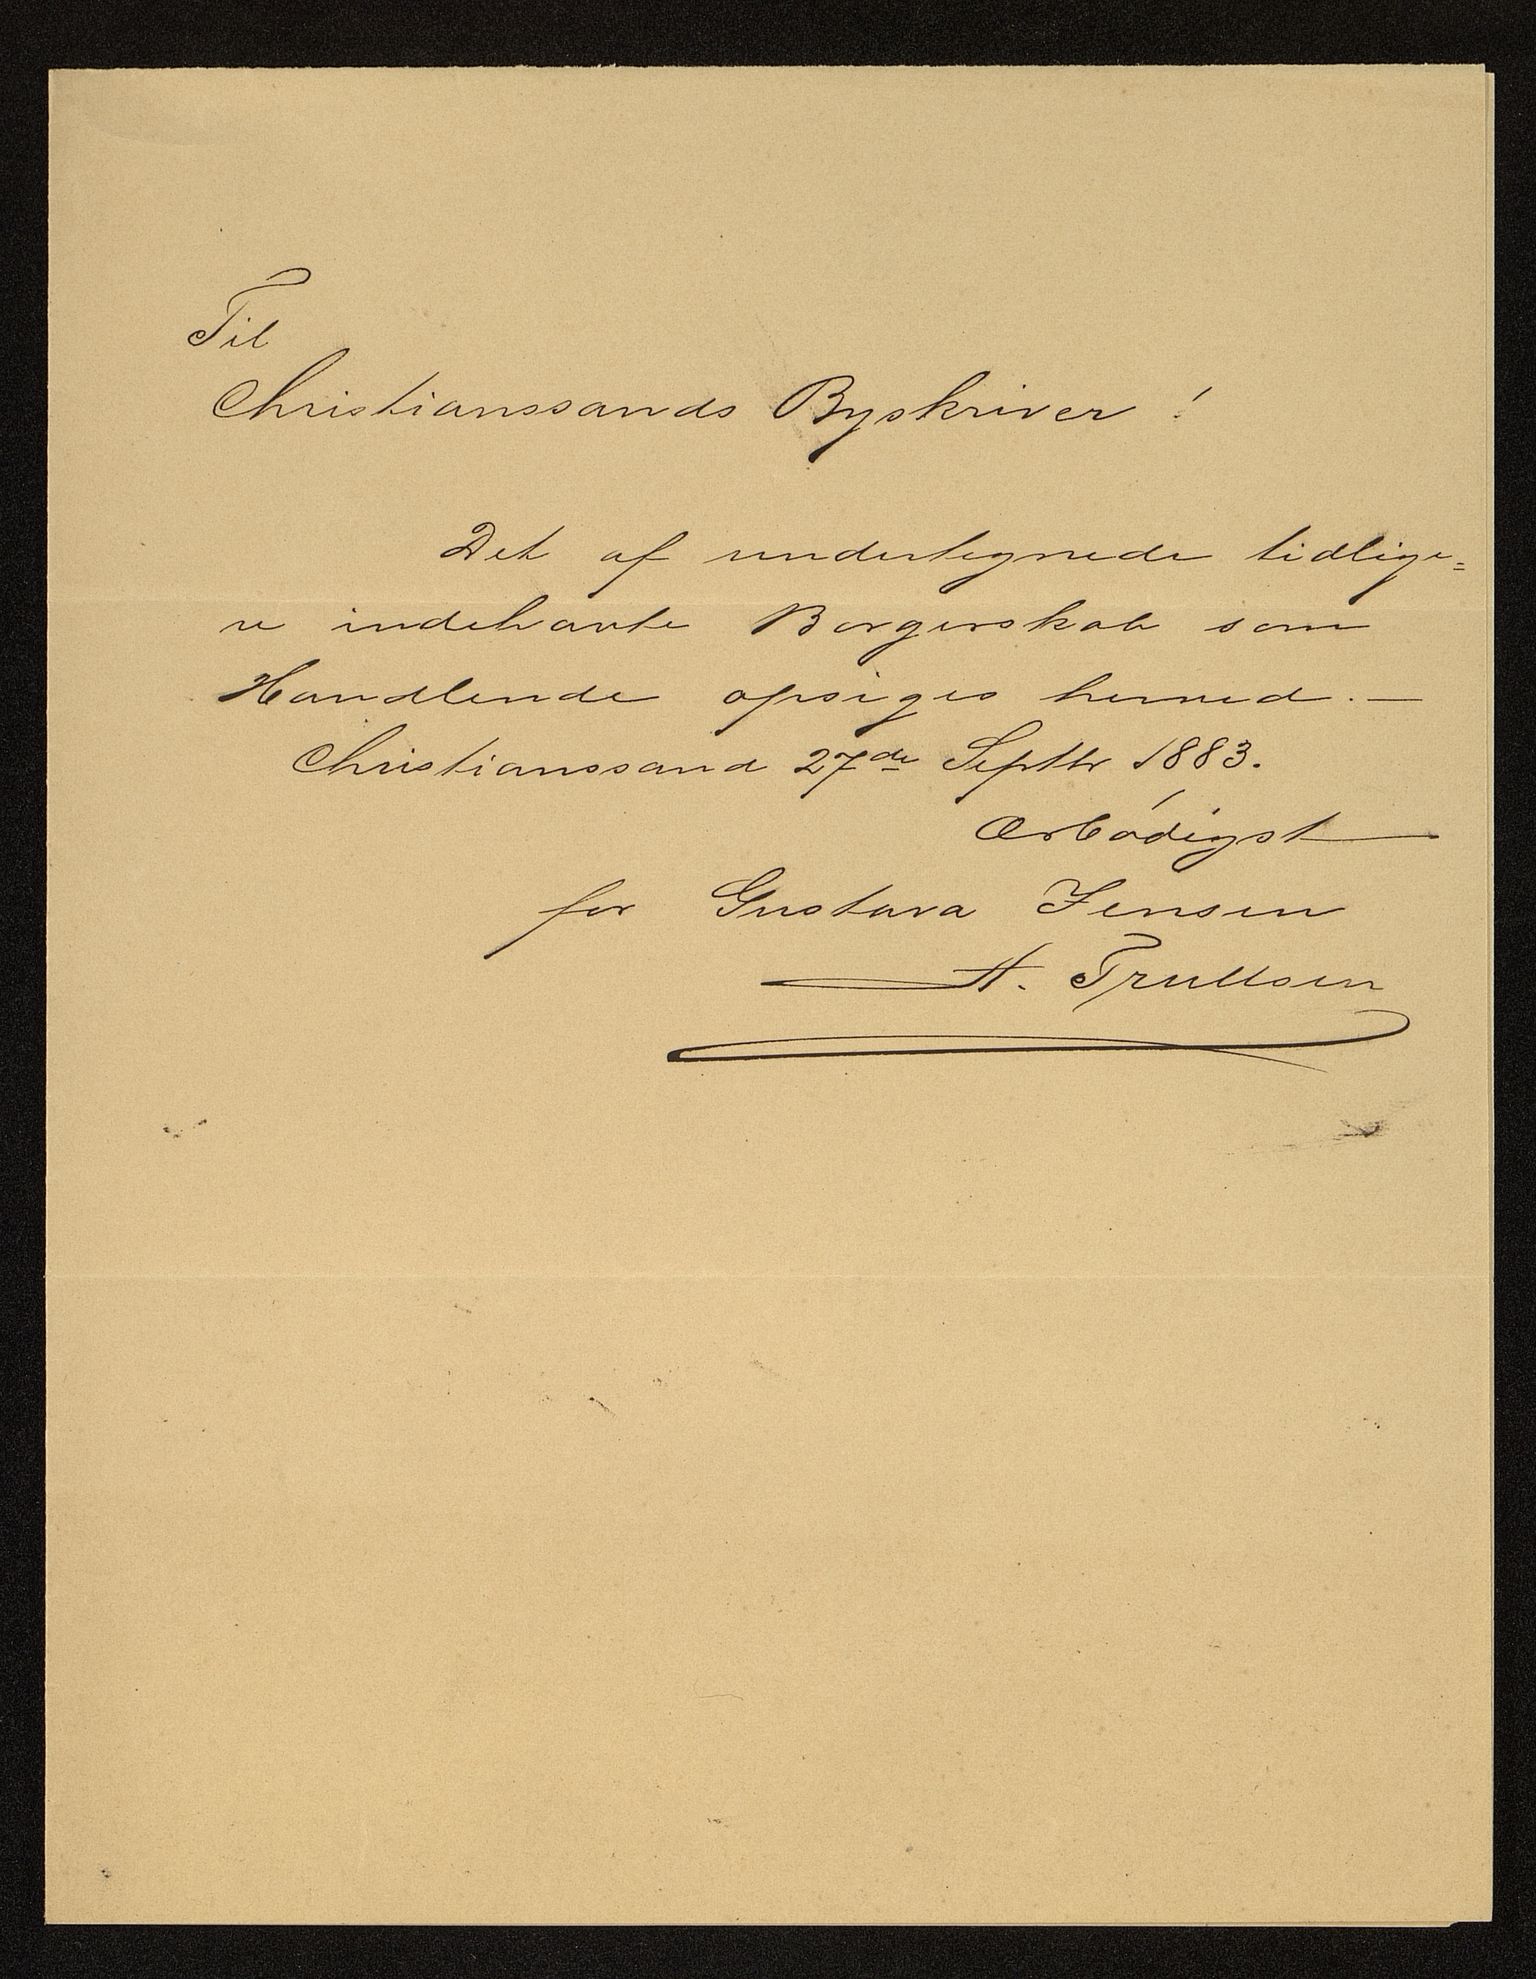 Til
Christianssands Byskriver!
Det af undertegnede tidlige=
re indehavte Borgerskab som
Handlende opsiges herved. —
Christianssand 27de Septbr 1883.
Ærbödigst
for Gustava Jensen
A. Trullsen